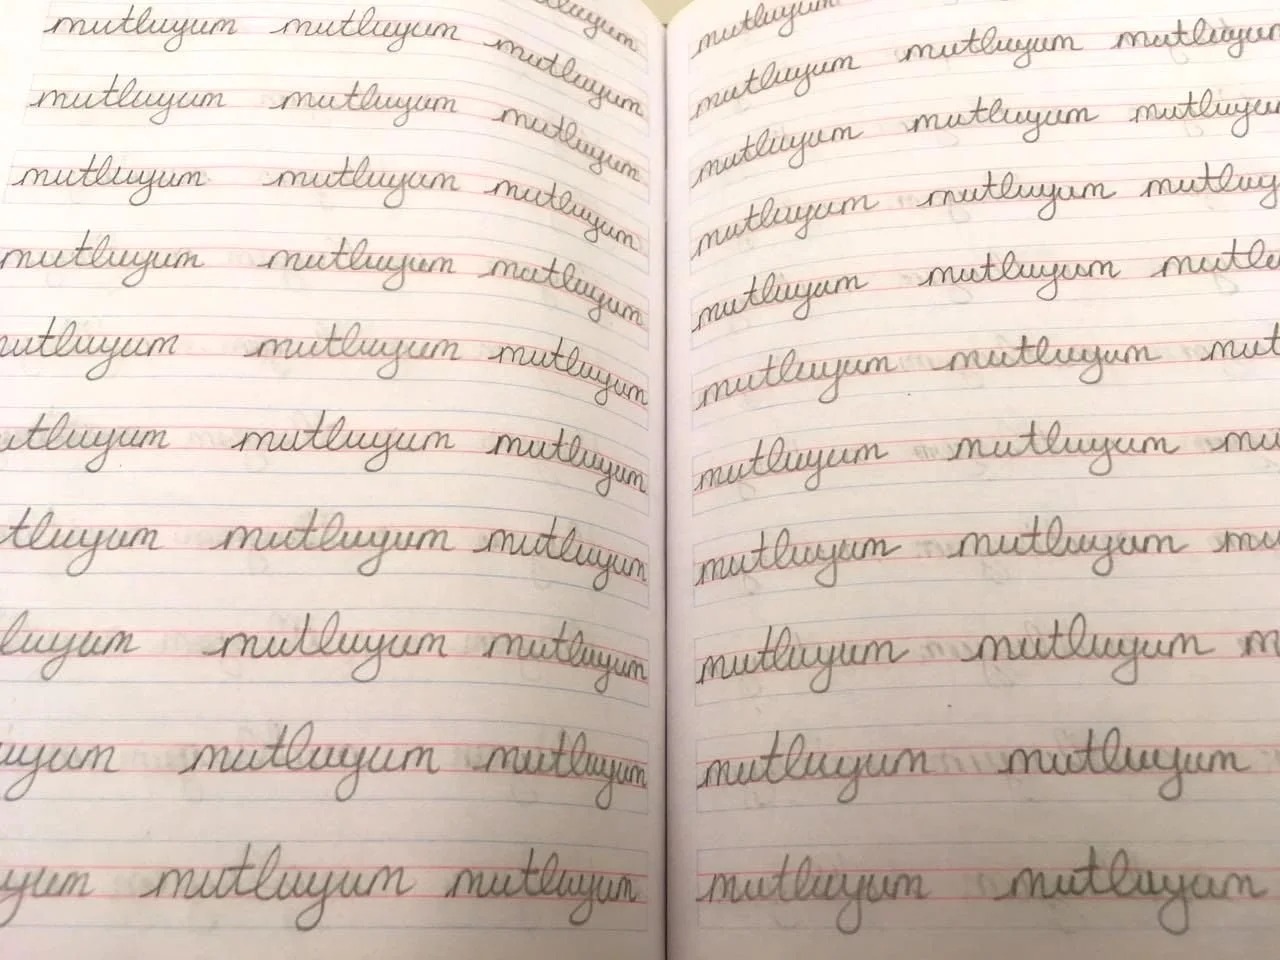 luyum
mutluyum mutluyum mutluyum
mutluyum mutluyum mutluyum
mutluyum mutluyum mutluyum
mutluyum mutluyum mutluyum
utluyum mutluyum mutluyum
utluyum mutluyum mutluyum
tluyum mutluyum mutluyum
luyum mutluyum mutluyum
uyum mutluyum mutluyum
yum mutluyum mutluyum
mutluyum
mutluyum mutluyum mutluyum
mutluyum mutluyum mutluyu
mutluyum mutluyum mutluy
mutluyum mutluyum mutlu
mutluyum mutluyum mut
mutluyum mutluyum mu
mutluyum mutluyum mu
mutluyum mutluyum m
mutluyum mutluyum
mutluyum mutluyum